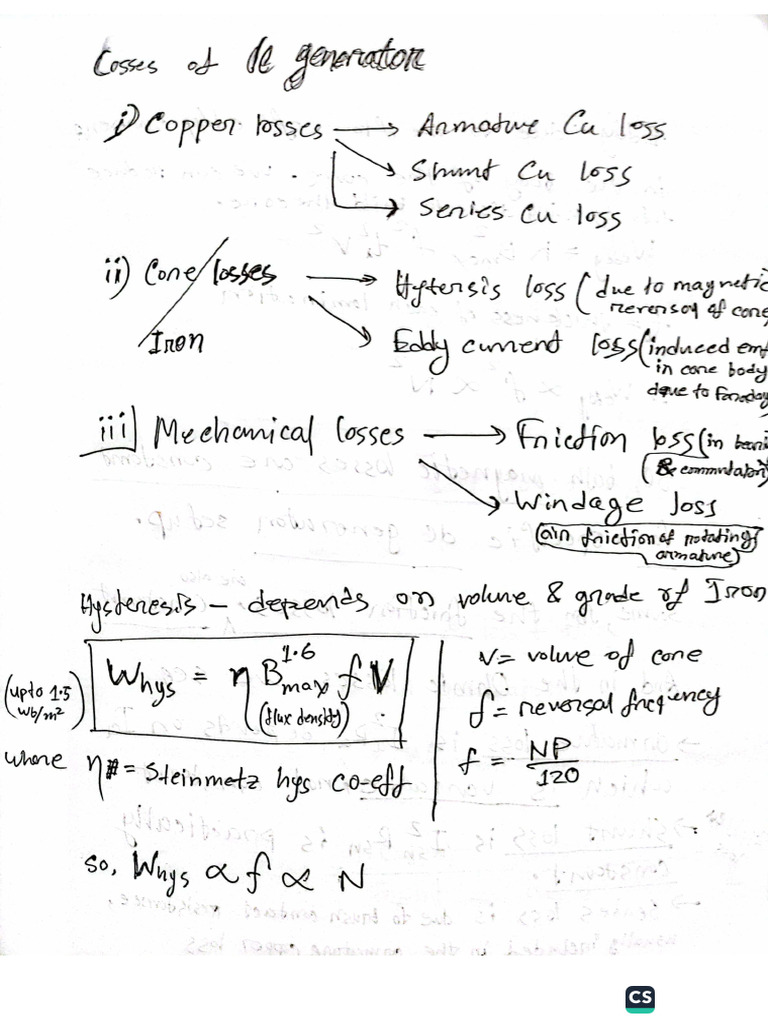 Losses of dc generator
i) Copper losses → Armature Cu loss
→ Shunt Cu loss
→ Series Cu loss
ii) Core/losses → Hytersis loss (due to magnetic
reversal of core
Iron → Eddy current loss (induced emf
in core body
due to Faraday
iii) Mechanical losses → Friction loss (in
& commutator)
→ Windage loss
(air friction of rotating
armature)
Hysteresis – depends on volume & grade of Iron
(upto 1.5 wb/m²) W_hys = η B_max^1.6 f V
(flux density)
where η = Steinmetz hys co-eff
V = volume of core
f = reversal frequency
f = NP/120
so, W_hys ∝ f ∝ N
CS